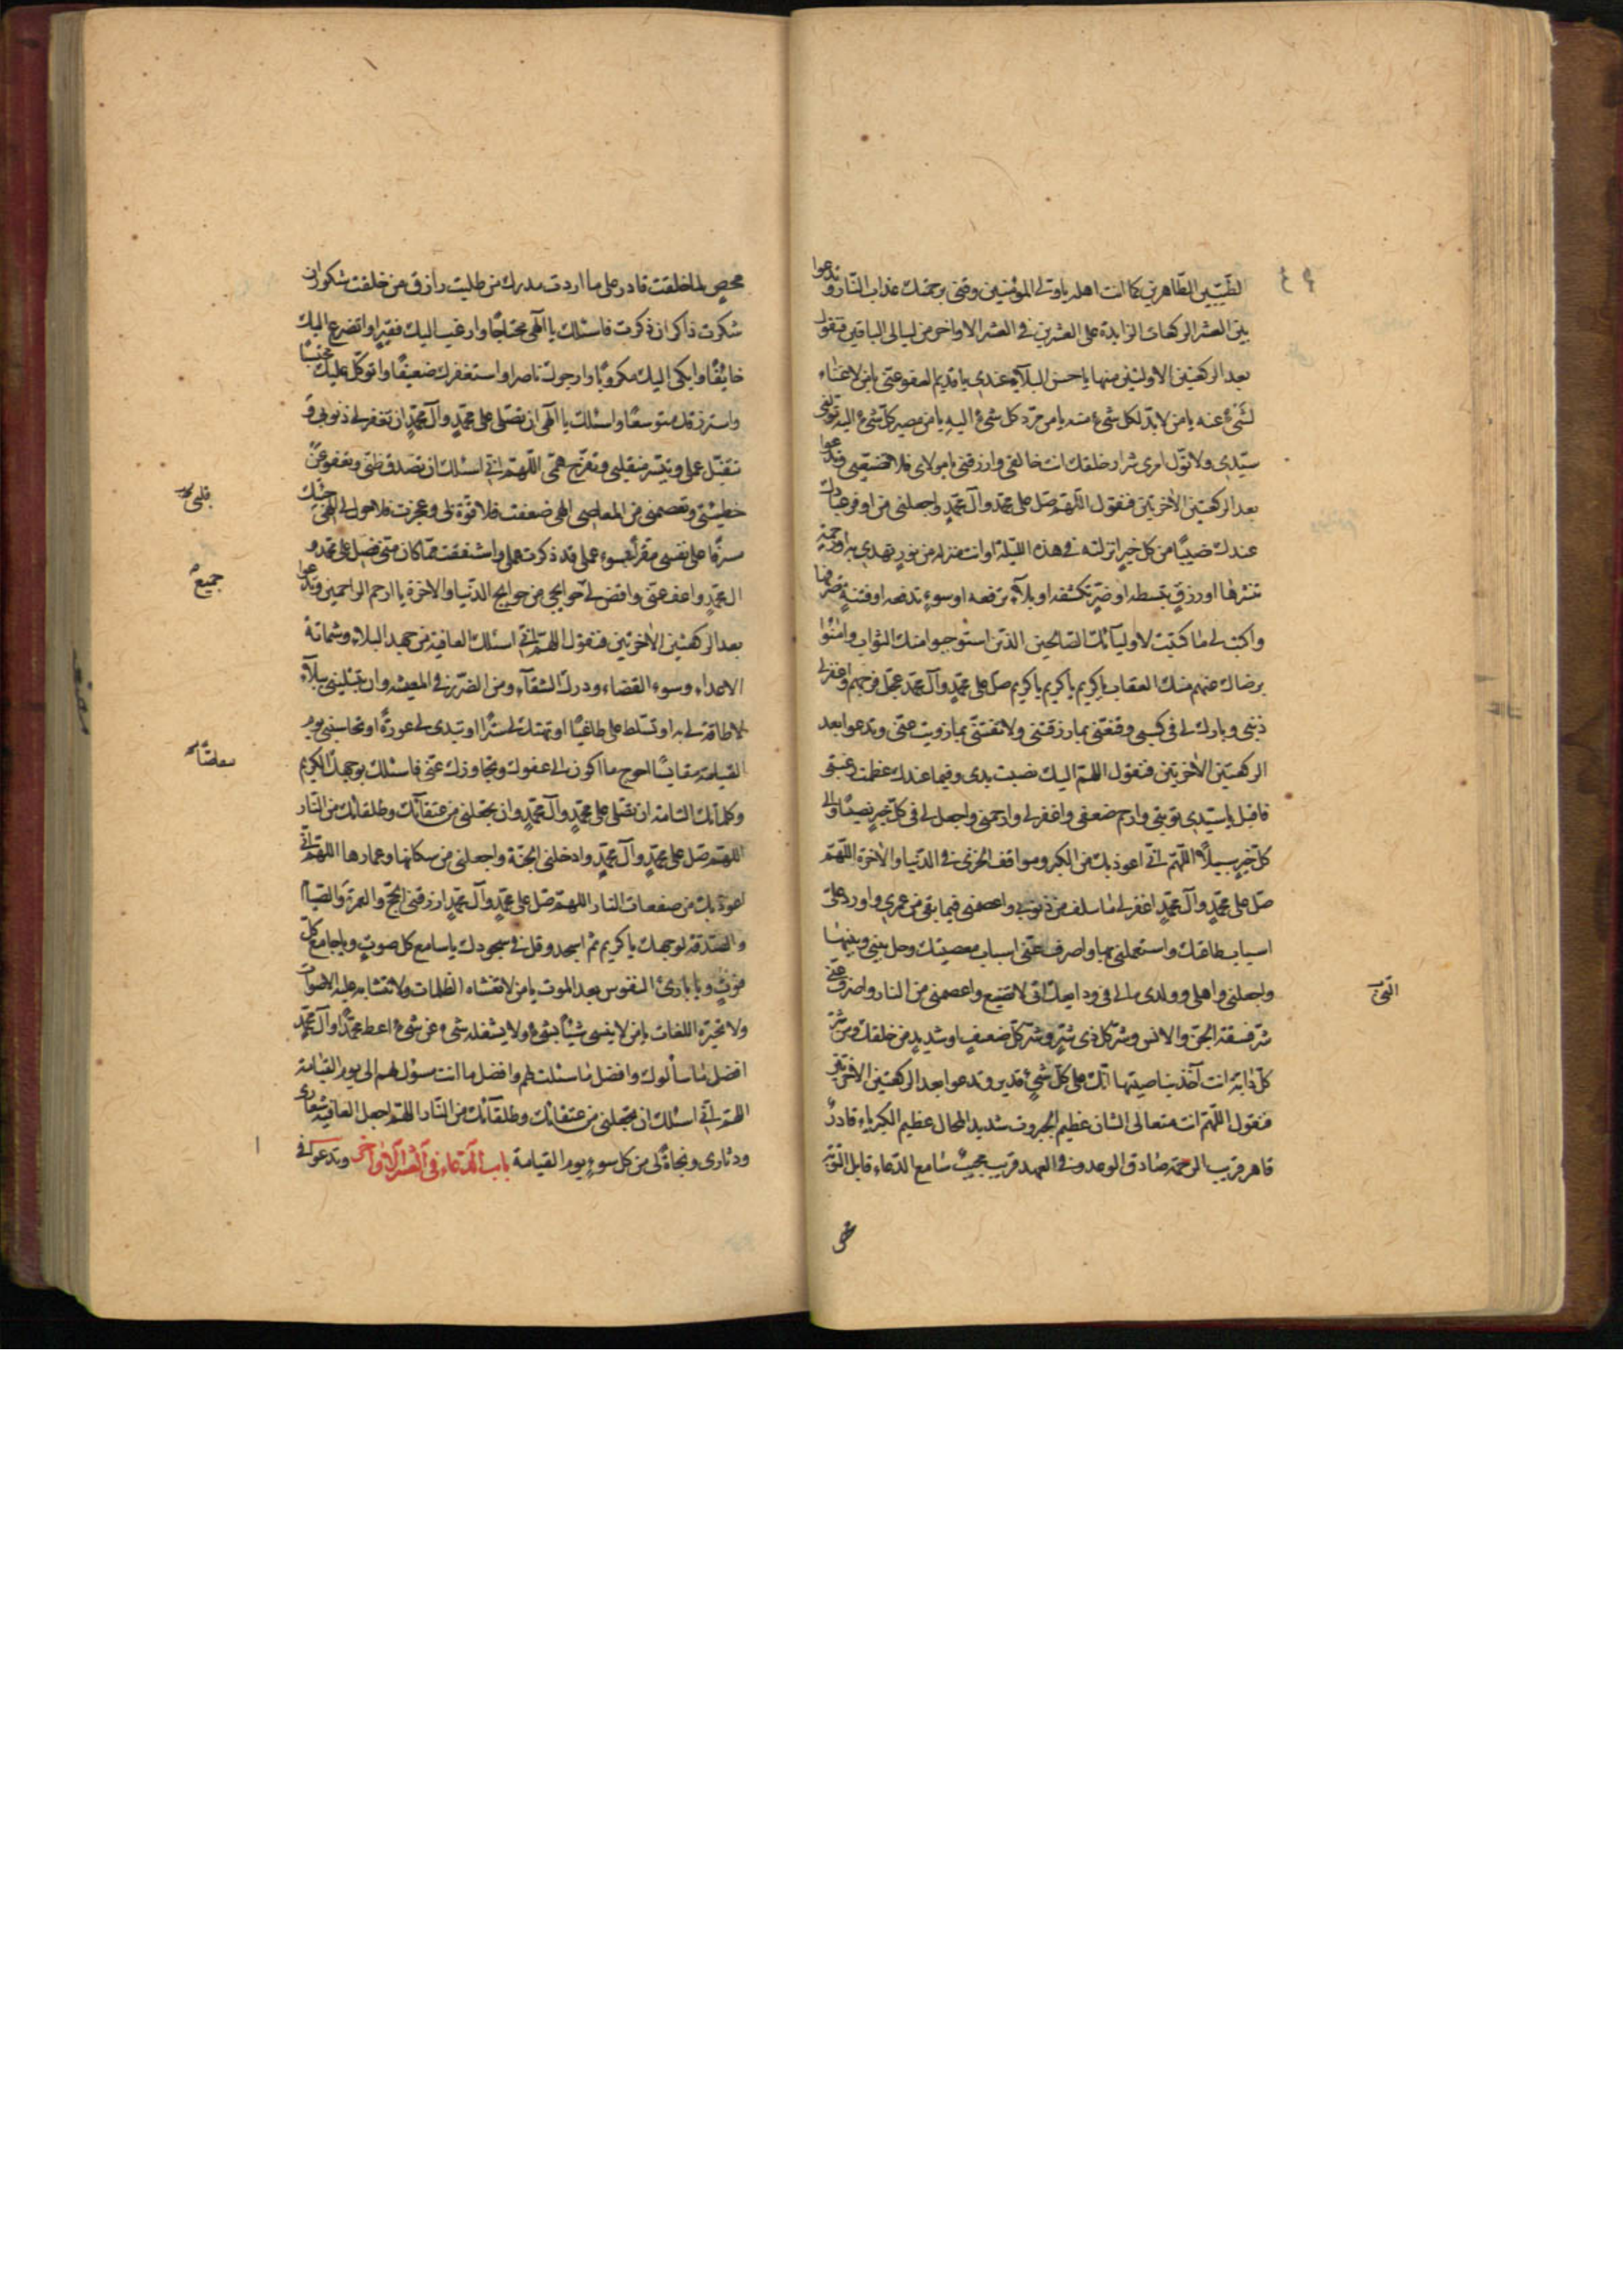 الطّيّبين الطّاهرين كما انت اهله يا ولي المؤمنين وقني برحمتك عذاب النّار وتدعوا
بين العشر الركعات الزايدة على العشرين في العشر الاواخر من ليالي الباقين فتقول
بعد الركعتين الاوليين منها يا حسن البلاء عندي يا قديم العفو عنّي يا من لا غناء
لشئ عنه يا من لا بدّ لكل شئ منه يا من مردّ كل شئ اليه يا من مصير كلّ شئ اليه تولّني
سيّدي ولا تولّ امري شرار خلقك انت خالقي ورازقي يا مولاي فلا تضيّعني وتدعوا
بعد الركعتين الأخريين فتقول اللّهمّ صلّ على محمّد وآل محمّد واجعلني من اوفر عبادك
عندك نصيبًا من كل خير انزلته في هذه الليلة او انت منزله من نور تهدي به او رحمة
تنشرها او رزق تبسطه او ضرّ تكشفه او بلاء ترفعه او سوء تدفعه او فتنة تصرفها
واكتب لي ما كتبت لاوليائك الصالحين الذين استوجبوا منك الثواب وامنوا
برضاك عنهم منك العقاب يا كريم يا كريم يا كريم صلّ على محمّد وآل محمّد عجّل فرجهم واغفر لي
ذنبي وبارك لي في كسبي وقنّعني بما رزقتني ولا تفتنّي بما زويت عنّي وتدعوا بعد
الركعتين الأخريين فتقول اللهمّ اليك نصبت يدي وفيما عندك عظمت رغبتي
فاقبل يا سيّدي توبتي وارحم ضعفي واغفر لي وارحمني واجعل لي في كلّ خير نصيبًا والى
كلّ خير سبيلًا اللّهمّ انّي اعوذ بك من الكبر ومواقف الخزى في الدّنيا والآخرة اللّهمّ
صلّ على محمّد وآل محمّد اغفر لي ما سلف من ذنوبي واعصمني فيما بقي من عمري واورد علىّ
اسباب طاعتك واستعملني بها واصرف عنّي اسباب معصيتك وحل بيني وبينها
واجعلني واهلي وولدي ومالي في ودايعك الّتي لا تضيع واعصمني من النار واصرف عنّي
شرّ فسقة الجنّ والانس وشرّ كل ذي شرّ وشرّ كلّ ضعيف او شديد من خلقك ومن شرّ
كلّ دابّة انت آخذ بناصيتها انّك على كلّ شئ قدير وتدعوا بعد الركعتين الأخريين
فتقول اللّهمّ انت متعالى الشان عظيم الجبروت شديد المحال عظيم الكبرياء قادر
قاهر قريب الرحمة صادق الوعد وفي العهد قريب مجيب سامع الدّعاء قابل التّوبة
محصٍ لما خلقت قادر على ما اردت مدرك من طلبت رازق من خلقت شكور ان
شكرت ذاكر ان ذكرت فاسئلك يا الهي محتاجًا وارغب اليك فقيرًا واتضرع اليك
خائفًا وابكي اليك مكروبًا وارجوك ناصرا واستغفرك ضعيفًا واتوكّل عليك محتسبًا
واسترزقك متوسعًا واسئلك يا الهي ان تصلّي على محمّد وآل محمّد ان تغفر لي ذنوبي و
تتقبّل عملي وتيسّر منقلبي وتفرّج همّي اللّهمّ انّي اسئلك ان تصدق ظنّي وتعفو عن
قلبي
خطيئتي وتعصمني من المعاصي الهي ضعفت فلا قوّة لي وعجزت فلا حول لي الهي جئتك
مسرفًا على نفسي مقرًّا بسوء عملي قد ذكرت عملي واشفقت ممّا كان منّي فصلّ على محمّد و
جميع
آل محمّد واعف عنّي واقض لي حوائجي من حوايج الدّنيا والآخرة يا ارحم الراحمين وتدعوا
بعد الركعتين الأخريين فتقول اللهمّ انّي اسئلك العافية من جهد البلاء وشماتة
الاعداء وسوء القضاء ودرك الشقاء ومن الضرّ في المعيشة وان تبتليني ببلاء
لا طاقة لي به او تسلّط علىّ طاغيًا او تهتك لي سترًا او تبدى لي عورةً او تحاسبني يوم
القيامة مقايسًا احوج ما اكون الى عفوك وتجاوزك عنّي فاسئلك بوجهك الكريم
وكلماتك التّامة ان تصلّي على محمّد وآل محمّد وان تجعلني من عتقائك وطلقائك من النّار
اللهمّ صلّ على محمّد وآل محمّد وادخلني الجنّة واجعلني من سكانها وعمارها اللهمّ انّي
اعوذ بك من سفعات النار اللهمّ صلّ على محمّد وآل محمّد ارزقني الحجّ والعمرة والصّيام
والصّدقة لوجهك يا كريم ثمّ اسجد وقل في سجودك يا سامع كل صوت ويا جامع كلّ
فوت ويا بارئ النفوس بعد الموت يا من لا تغشاه الظلمات ولا تتشابه عليه الاصوات
ولا تحيّره اللغات يا من لا ينسى شيئًا لشئ ولا يشغله شئ عن شئ اعط محمّدًا وآل محمّد
افضل ما سألوك وافضل ما سئلت لهم وافضل ما انت مسؤل لهم الى يوم القيامة
اللهمّ انّي اسئلك ان تجعلني من عتقائك وطلقائك من النّار اللهمّ اجعل العافية شعارى
ودثارى ونجاةً لي من كل سوء يوم القيامة باب الدّعاء في العشر الاواخر وتدعوا في